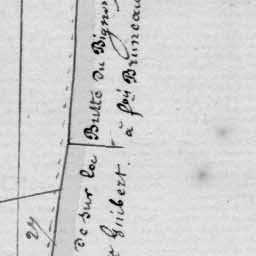 Butte du Bignon
à feu Bruneau
de sur la
Guibert.
27